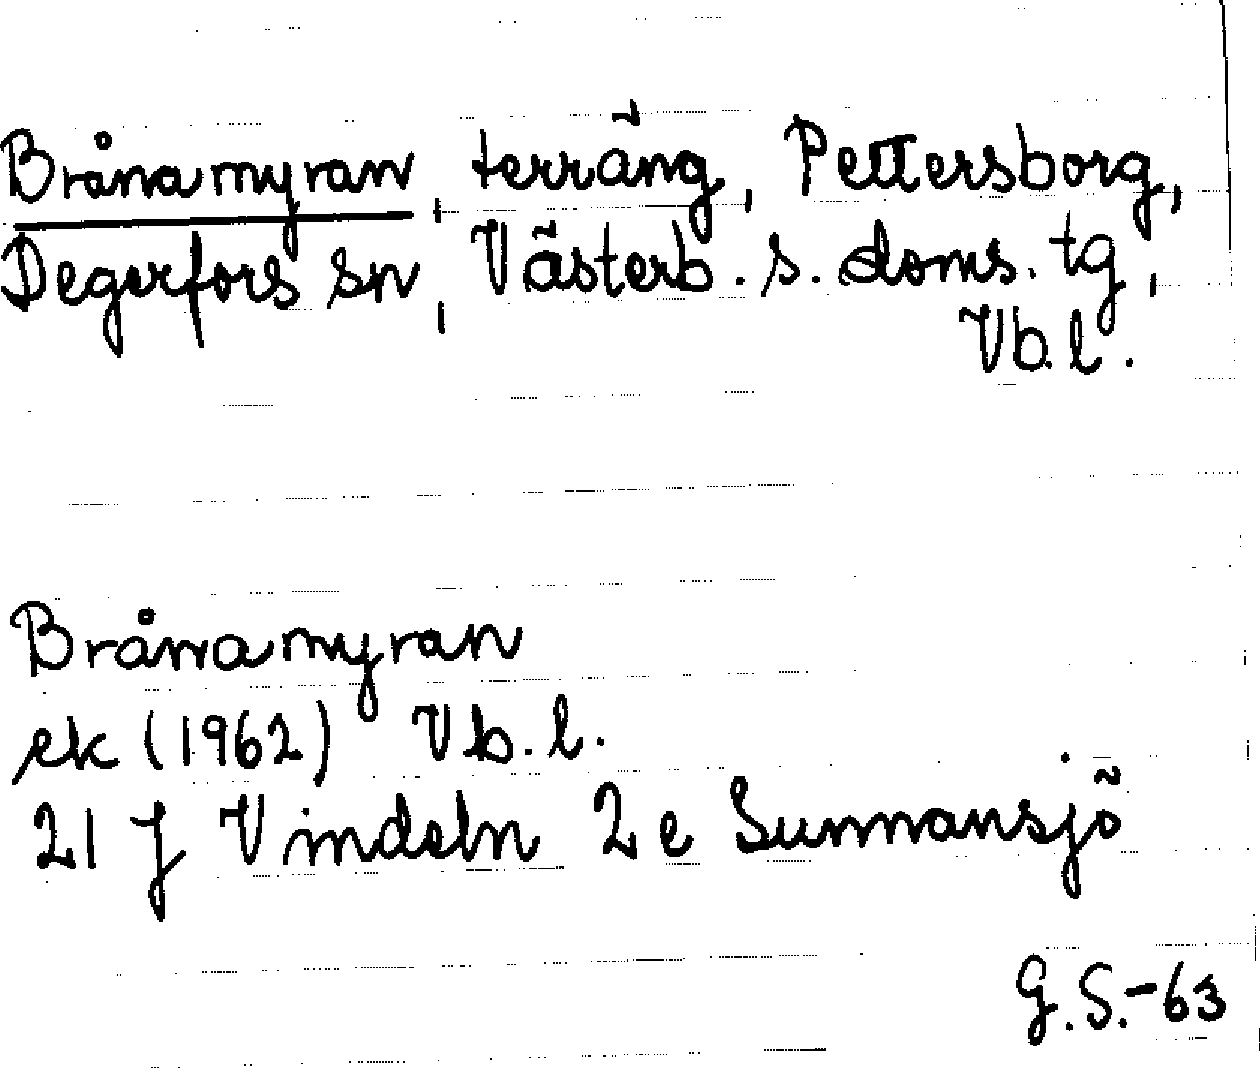 Brånamyran, terräng, Pettersborg,
Degerfors sn, Västerb. s. doms. tg,
Vb. l.
Brånamyran
ek (1962) Vb. l.
21 J Vindeln 2 e Sunnansjö
G. S. -63